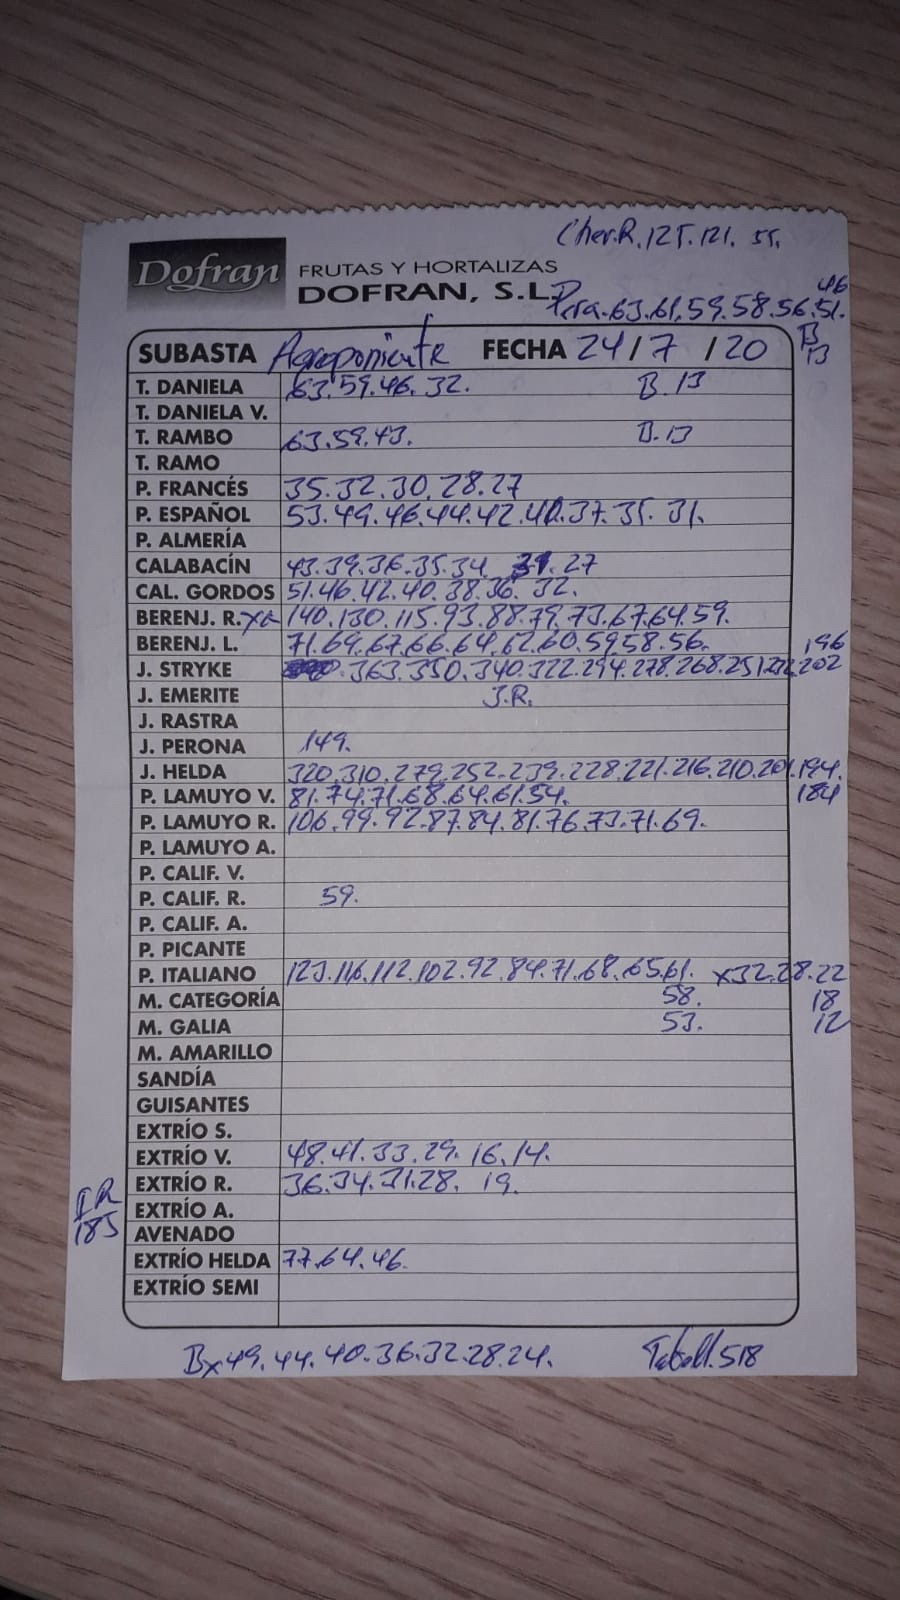 Cher.R. 125. 121. 55.
Dofran FRUTAS Y HORTALIZAS
DOFRAN, S.L.
Pera. 63. 61. 59. 58. 56. 51. 46
B 13
SUBASTA Agroponiente FECHA 24/7/20
T. DANIELA 63. 59. 46. 32. B. 13
T. DANIELA V.
T. RAMBO 63. 59. 43. B. 13
T. RAMO
P. FRANCÉS 35. 32. 30. 28. 27
P. ESPAÑOL 53. 49. 46. 44. 42. 40. 37. 35. 31.
P. ALMERÍA
CALABACÍN 43. 39. 36. 35. 34. 31. 27
CAL. GORDOS 51. 46. 42. 40. 38. 36. 32.
BERENJ. R. 140. 130. 115. 93. 88. 79. 73. 67. 64. 59.
BERENJ. L. 71. 69. 67. 66. 64. 62. 60. 59. 58. 56.
J. STRYKE 363. 350. 340. 322. 294. 278. 268. 251. 232. 202 196
J. EMERITE J.R.
J. RASTRA
J. PERONA 149.
J. HELDA 320. 310. 279. 252. 239. 228. 221. 216. 210. 201. 194. 184
P. LAMUYO V. 81. 74. 71. 68. 64. 61. 54.
P. LAMUYO R. 106. 99. 92. 87. 84. 81. 76. 73. 71. 69.
P. LAMUYO A.
P. CALIF. V.
P. CALIF. R. 59.
P. CALIF. A.
P. PICANTE
P. ITALIANO 123. 116. 112. 102. 92. 84. 71. 68. 65. 61. x32. 28. 22
M. CATEGORÍA 58. 18
M. GALIA 53. 12
M. AMARILLO
SANDÍA
GUISANTES
EXTRÍO S.
EXTRÍO V. 48. 41. 33. 29. 16. 14.
EXTRÍO R. 36. 34. 31. 28. 19.
EXTRÍO A.
IR 185
AVENADO
EXTRÍO HELDA 77. 64. 46.
EXTRÍO SEMI
Bx49. 44. 40. 36. 32. 28. 24. 518